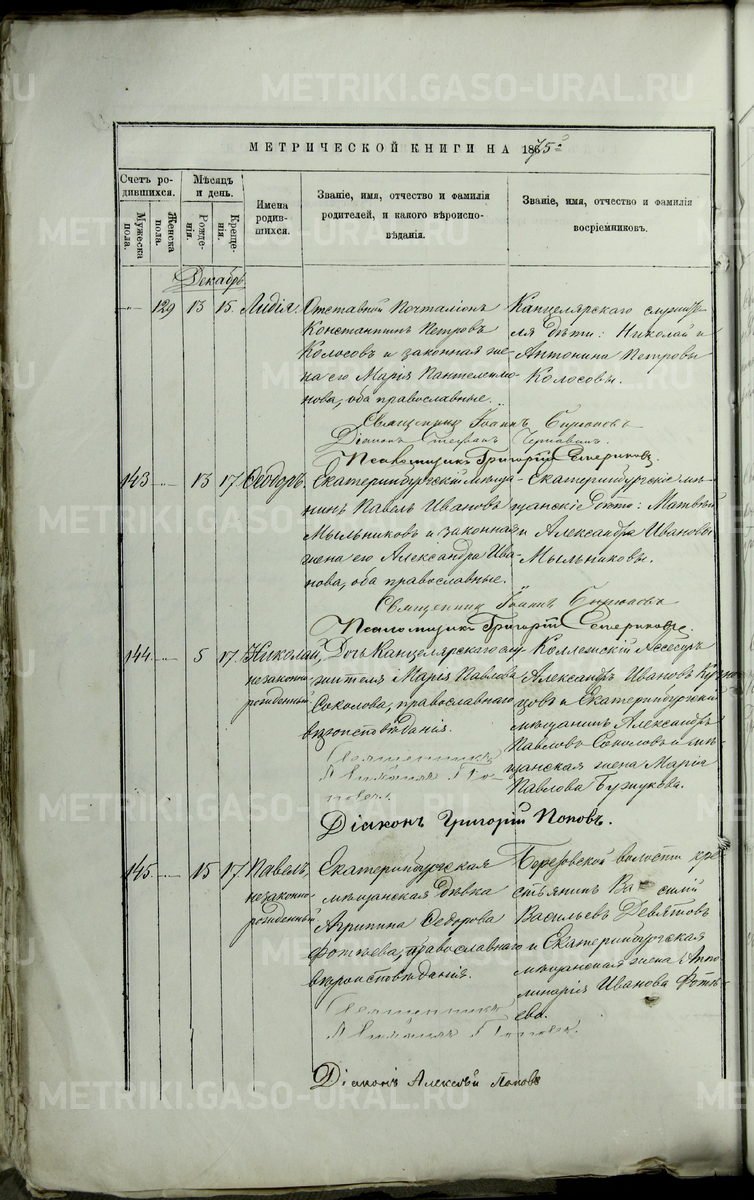 МЕТРИЧЕСКОЙ КНИГИ НА 1875 г
Счетъ ро-
дившихся.
Мужеска
пола.
Женска
пола.
Мѣсяцъ
и день.
Рожде-
нія.
Креще-
нія.
Имена
родив-
шихся.
Званіе, имя, отчество и фамилія
родителей, и какого вѣроиспо-
вѣданія.
Званіе, имя, отчество и фамилія
восріемниковъ.
Декабрь
129 13 15. Лидія.
Отставной Почталіонъ
Константинъ Петровъ
Колосовъ и законная же-
на его Марія Пантелеимо-
нова, оба православные.
Канцелярскаго служите-
ля дѣти: Николай и
Антонина Петровы
Колосовы.
Священникъ Іоаннъ
Діаконъ Стефанъ
Псаломщикъ Григорій
143 13 17. Ѳеодоръ.
Екатеринбургскій мѣща-
нинъ Павелъ Ивановъ
Мыльниковъ и законная
жена его Александра Ива-
нова, оба православные.
Екатеринбургскіе мѣ-
щанскіе дѣти: Матвѣй
и Александра Ивановы
Мыльниковы.
Священникъ Іоаннъ
Псаломщикъ Григорій
144 5 17. Николай,
незаконно
рожденный
Дочь Канцелярскаго слу-
жителя Марія Павлова
Соколова, православнаго
вѣроисповѣданія.
Коллежскій Ассесоръ
Александръ Ивановъ
и Екатеринбургскій
мѣщанинъ Александръ
Павловъ Соколовъ и мѣ-
щанская жена Марія
Павлова
Священникъ
Поповъ.
Діаконъ Григорій Поповъ.
145 15 17. Павелъ,
незаконно-
рожденный
Екатеринбургская
мѣщанская дѣвка
Агрипина Ѳедорова
Фотѣева, православнаго
вѣроисповѣданія.
Березовской волости кре-
стьянинъ Василій
Васильевъ Девятовъ
и Екатеринбургская
мѣщанская жена Аппо-
линарія Иванова Фотѣ-
ева.
Священникъ
Поповъ.
Діаконъ Алексѣй Поповъ
METRIKI.GASO-URAL.RU